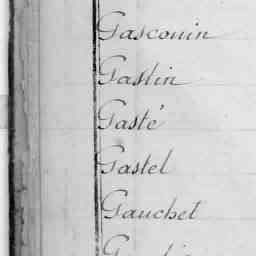 Gascouin
Gaslin
Gasté
Gastel
Gauchet